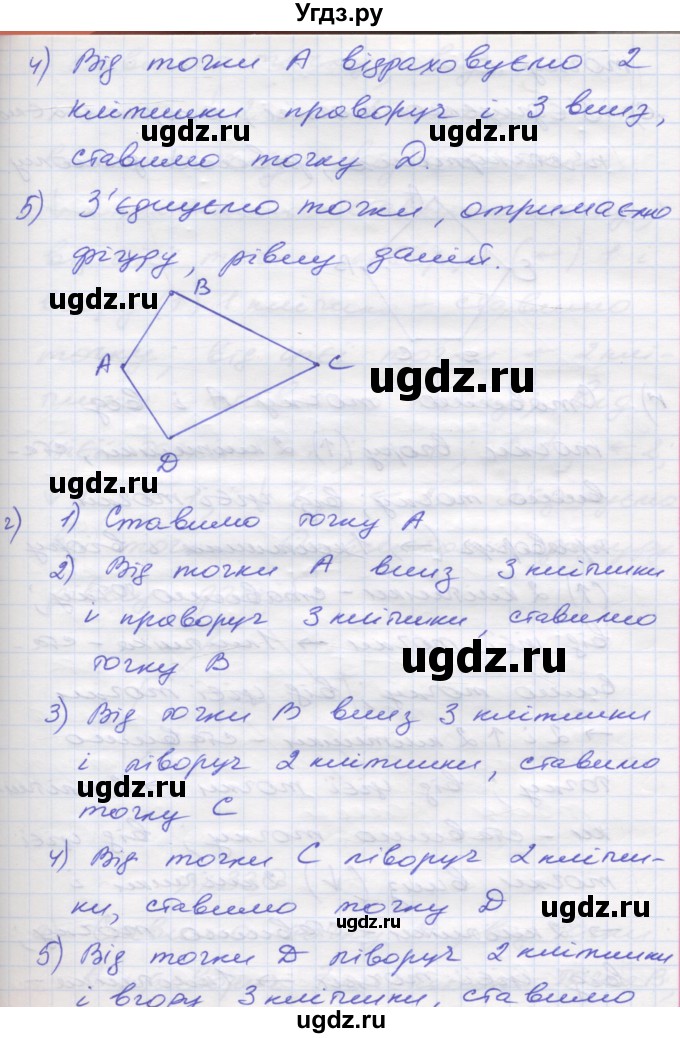 Угдз.ру
4) Від точки А відраховуємо 2
клітинки праворуч і 3 вниз,
ugdz.ru ugdz.ru
ставимо точку D.
5) З'єднуємо точки, отримаємо
фігуру, рівну даній.
ugdz.ru
B
A
C
ugdz.ru
D
ugdz.ru
г) 1) Ставимо точку А
2) Від точки А вниз 3 клітинки
и праворуч 3 клітинки, ставимо
точку В
ugdz.ru
3) Від точки В вниз 3 клітинки
і ліворуч 2 клітинки, ставимо
ugdz.ru
точку С
4) Від точки С ліворуч 2 клітин-
ки, ставимо точку D
ugdz.ru
ugdz.ru
5) Від точки D ліворуч 2 клітинки
і вгору 3 клітинки, ставимо
ugdz.ru